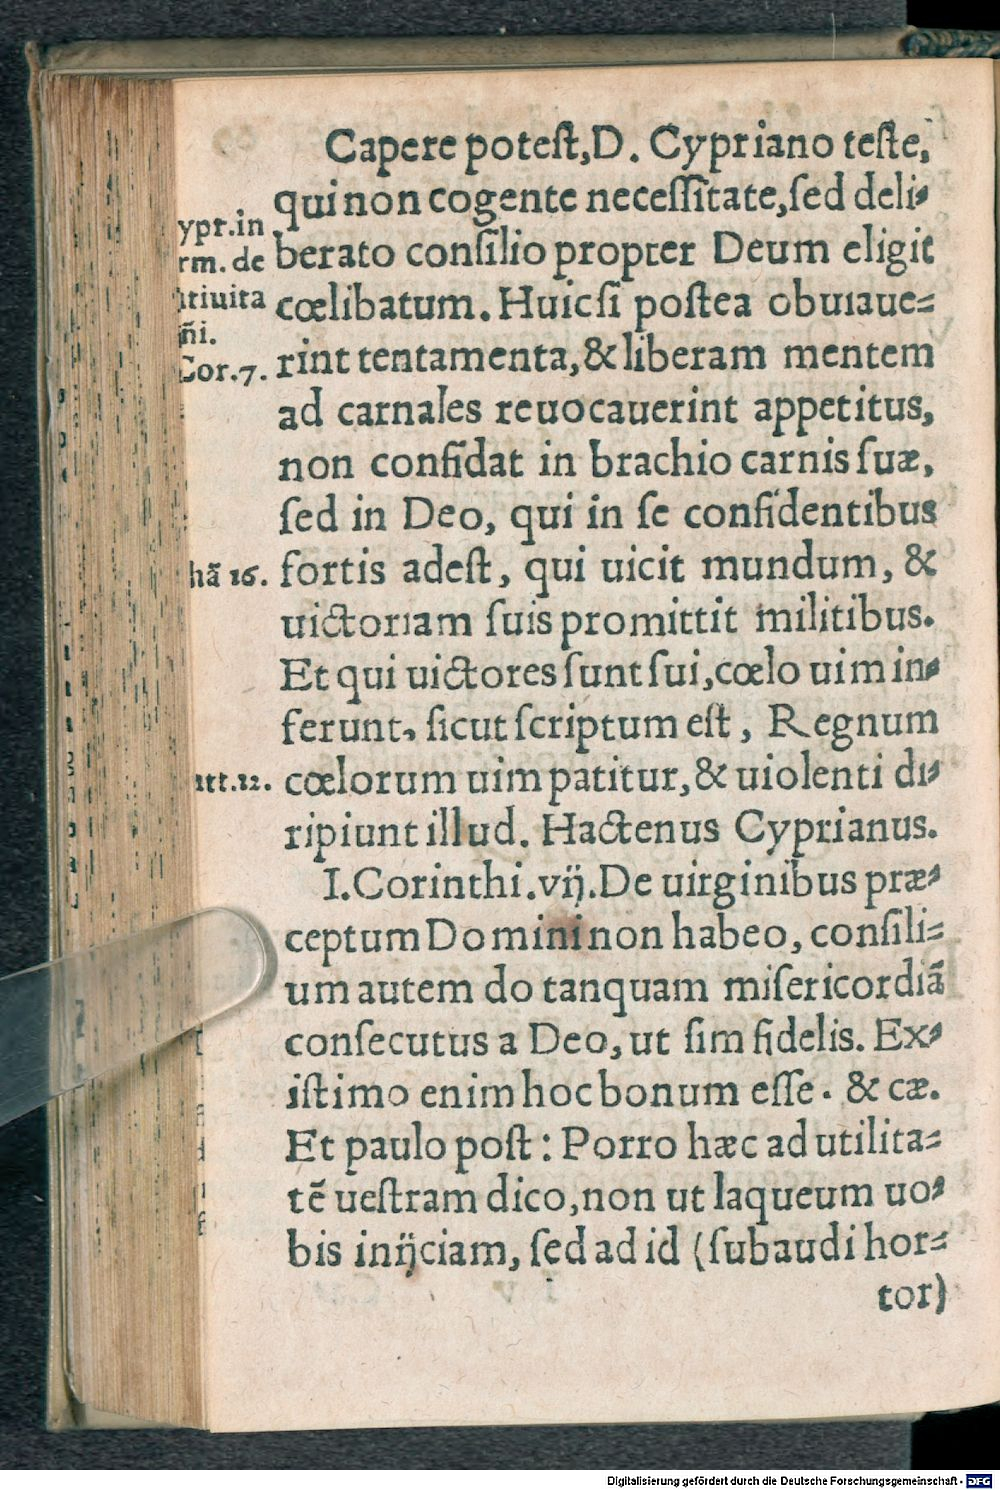 Capere potest, D. Cypriano teste,
qui non cogente neceſſitate, ſed deli-
berato conſilio propter Deum eligit
cœlibatum. Huic ſi poſtea obuiaue-
rint tentamenta, & liberam mentem
ad carnales reuocauerint appetitus,
non confidat in brachio carnis ſuæ,
ſed in Deo, qui in ſe confidentibus
fortis adeſt, qui uicit mundum, &
uictoriam ſuis promittit militibus.
Et qui uictores ſunt ſui, cœlo uim in-
ferunt, ſicut ſcriptum eſt, Regnum
cœlorum uim patitur, & uiolenti di-
ripiunt illud. Hactenus Cyprianus.
I. Corinthi. vij. De uirginibus præ-
ceptum Domini non habeo, conſili-
um autem do tanquam miſericordiã
conſecutus a Deo, ut ſim fidelis. Ex-
iſtimo enim hoc bonum eſſe. & cæ.
Et paulo poſt: Porro hæc ad utilita-
tẽ ueſtram dico, non ut laqueum uo-
bis inijciam, ſed ad id (ſubaudi hor-
tor)
ypr. in
rm. de
tiuita
ñi.
Cor. 7.
hã 16.
tt. 12.
Digitalisierung gefördert durch die Deutsche Forschungsgemeinschaft - DFG